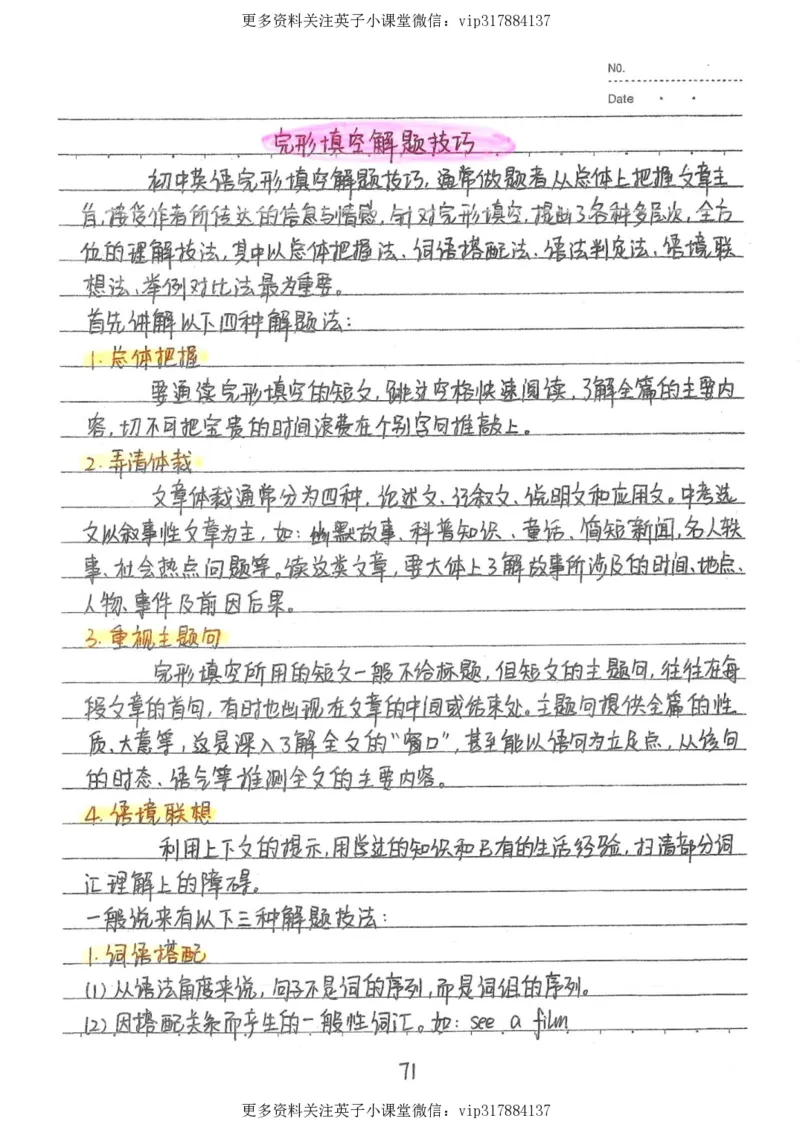 更多资料关注英子小课堂微信：vip317884137
NO.
Date
完形填空解题技巧
初中英语完形填空解题技巧,通常做题者从总体上把握文章主
旨,接受作者所传达的信息与情感,针对完形填空,提出了各种多层次,全方
位的理解技法,其中以总体把握法、词语搭配法、语法判定法、语境联
想法、举例对比法最为重要。
首先讲解以下四种解题法：
1.总体把握
要通读完形填空的短文,跳过空格快速阅读,了解全篇的主要内
容,切不可把宝贵的时间浪费在个别字句推敲上。
2.弄清体裁
文章体裁通常分为四种,论述文、记叙文、说明文和应用文。中考选
文以叙事性文章为主,如：幽默故事、科普知识、童话、简短新闻,名人轶
事、社会热点问题等。读这类文章,要大体上了解故事所涉及的时间、地点、
人物、事件及前因后果。
3.重视主题句
完形填空所用的短文一般不给标题,但短文的主题句,往往在每
段文章的首句,有时也出现在文章的中间或结束处。主题句提供全篇的性
质、大意等,这是深入了解全文的“窗口”,甚至能以语句为立足点,从该句
的时态、语气等推测全文的主要内容。
4.语境联想
利用上下文的提示,用学过的知识和已有的生活经验,扫清部分词
汇理解上的障碍。
一般说来有以下三种解题技法：
1.词语搭配
(1)从语法角度来说,句子不是词的序列,而是词组的序列。
(2)因搭配关系而产生的一般性词汇。如：see a film
71
更多资料关注英子小课堂微信：vip317884137